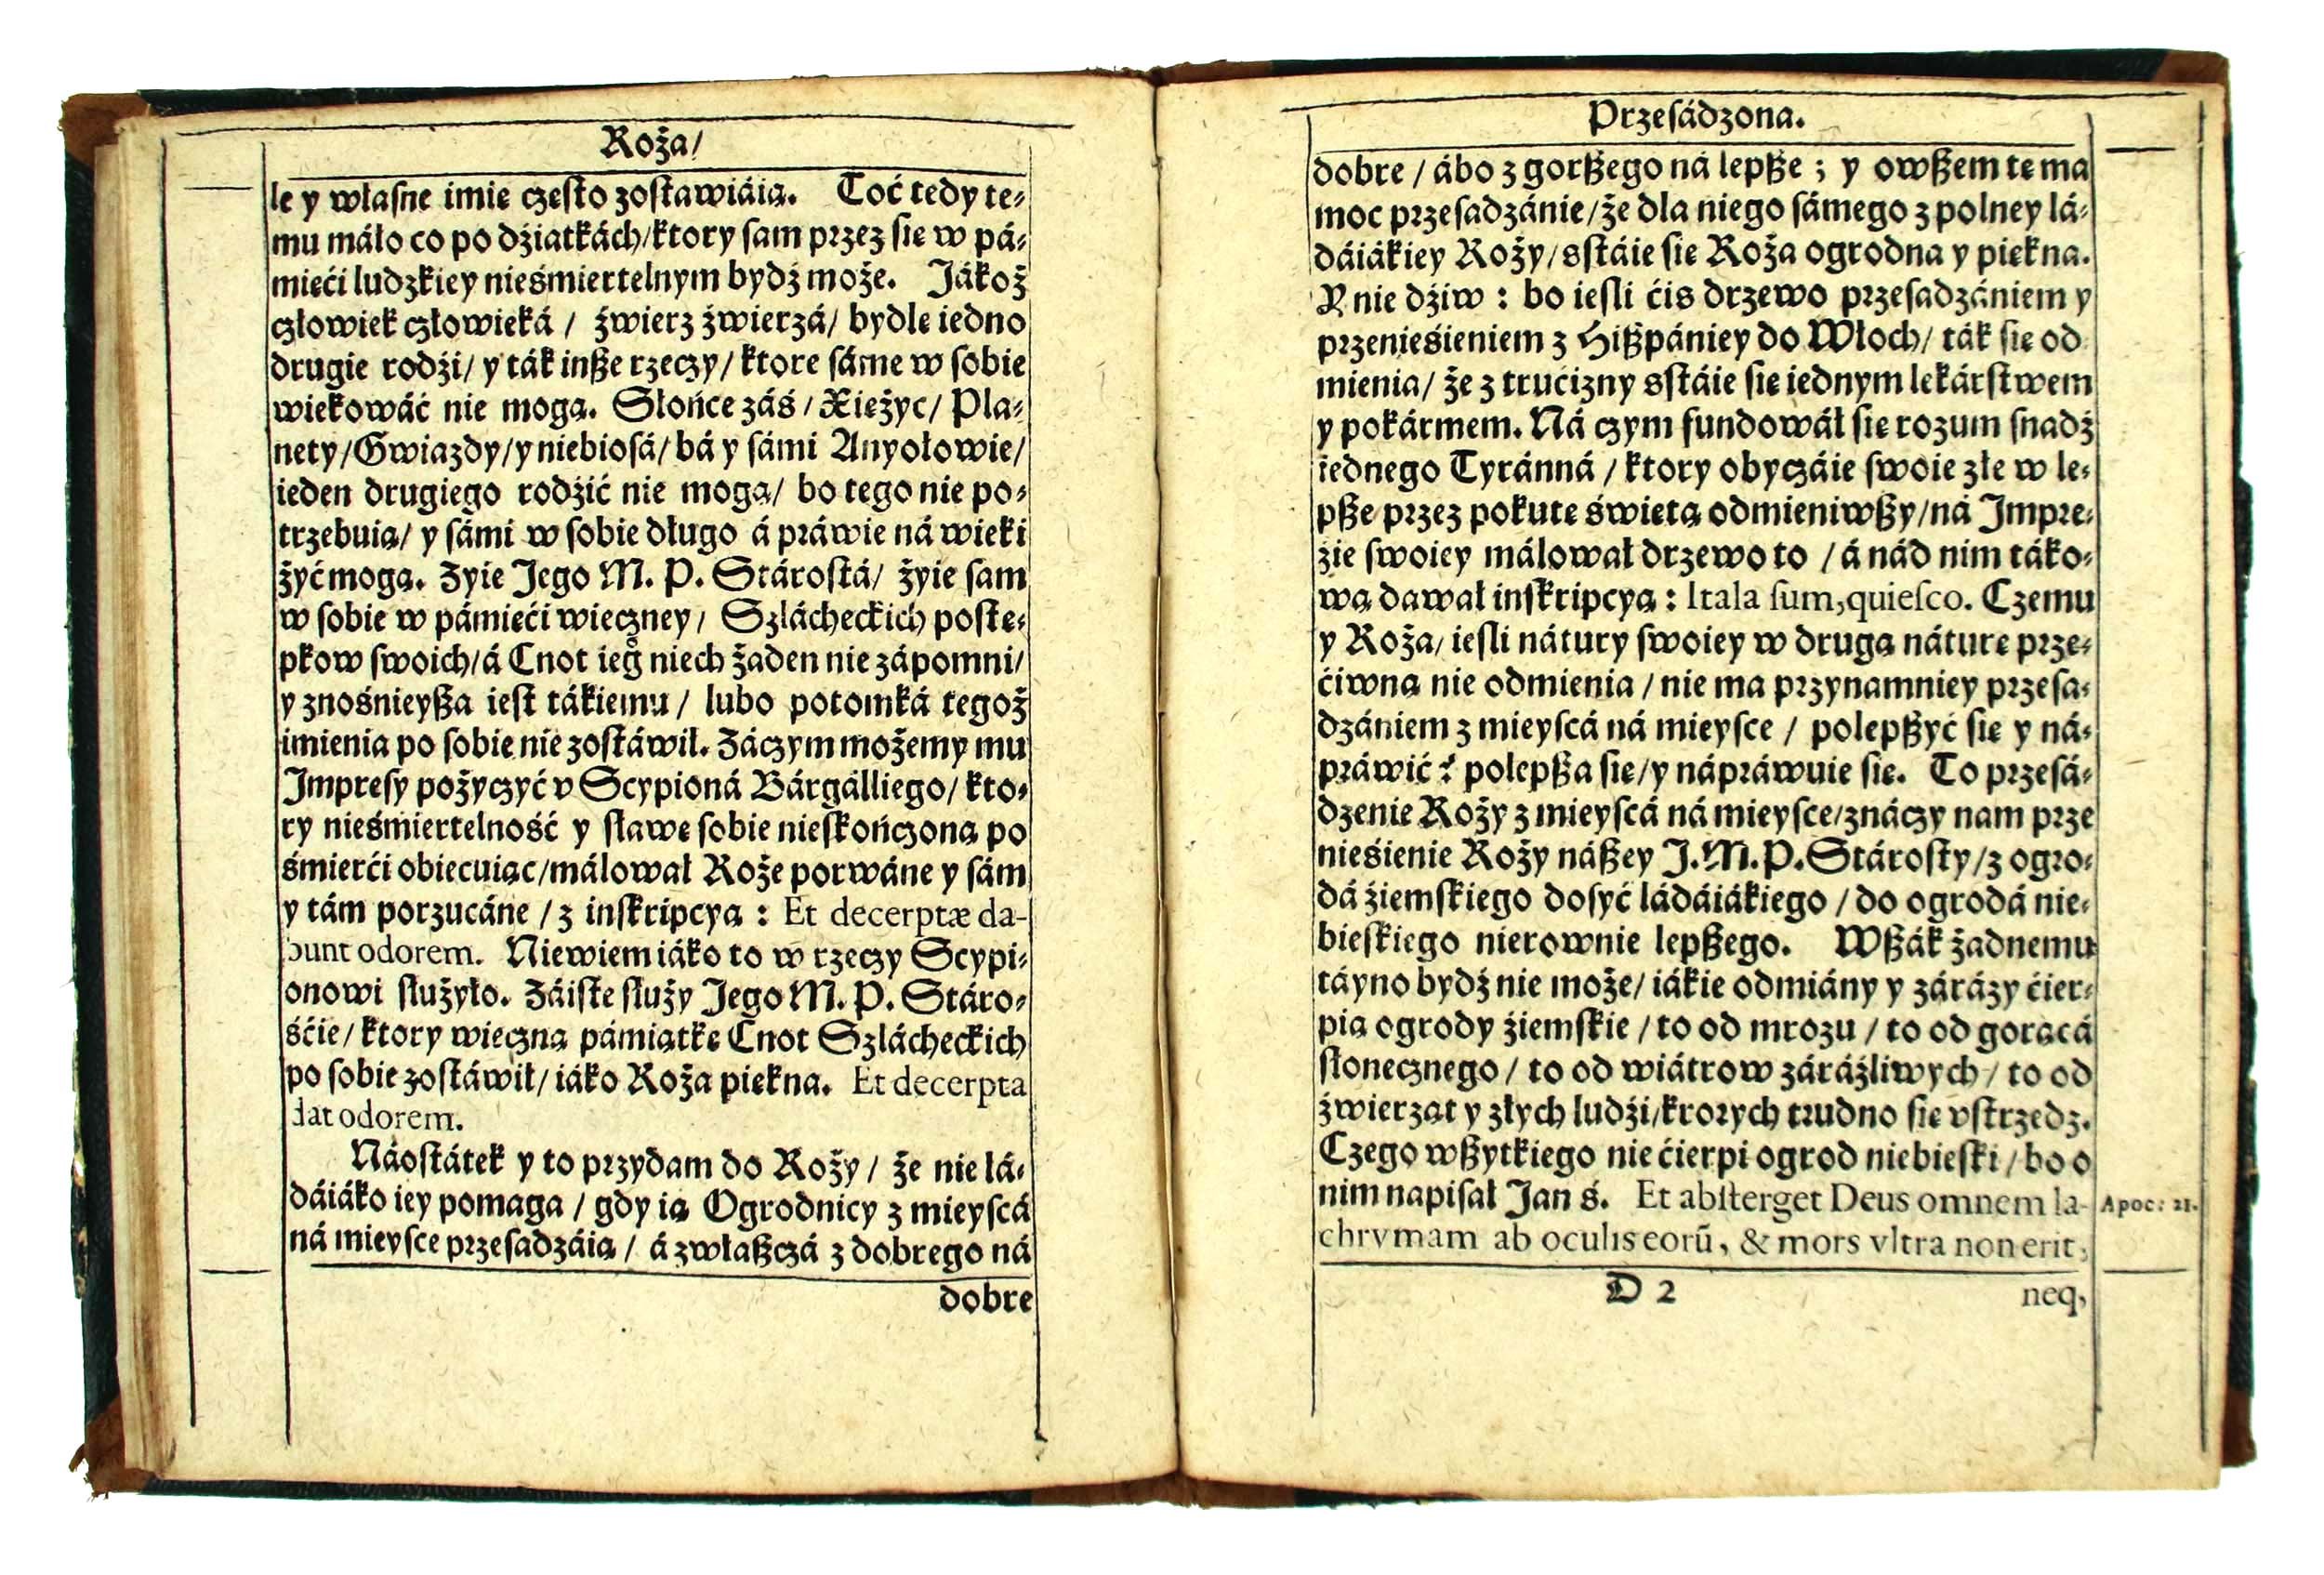 Roża/
le y własne imię często zostawiáią. Toć tedy te-
mu máło co po dźiatkách/ktory sam przez się w pá-
mięći ludzkiey nieśmiertelnym bydź może. Jákoż
człowiek człowieká / źwierz źwierzá/ bydlę iedno
drugie rodźi/ y ták insze rzeczy/ ktore sáme w sobie
wiekowáć nie mogą. Słońce záś / Xiężyc/ Pla-
nety/Gwiazdy/y niebiosá/ bá y sámi Anyołowie/
ieden drugiego rodźić nie mogą/ bo tego nie po-
trzebuią/ y sámi w sobie długo á práwie ná wieki
żyć mogą. Zyie Jego M. P. Stárostá/ żyie sam
w sobie w pámięći wieczney/ Szlácheckich postę-
pkow swoich/á Cnot ieg̊ niech żaden nie zápomni/
y znośnieysza iest tákiemu / lubo potomká tegoż
imienia po sobie nie zostáwił. Záczym możemy mu
Impresy pożyczyć v Scypioná Bárgálliego/ kto-
ry nieśmiertelność y sławę sobie nieskończoną po
śmierći obiecuiąc/málował Roże porwáne y sám
y tám porzucáne / z inskripcyą : Et decerptæ da-
bunt odorem. Niewiem iáko to w rzeczy Scypi-
onowi służyło. Záiste służy Jego M. P. Stáro-
śćie/ ktory wieczną pámiątkę Cnot Szlácheckich
po sobie zostáwił/ iáko Roża piękna. Et decerpta
dat odorem.
Náostátek y to przydam do Roży / że nie lá-
dáiáko iey pomaga / gdy ią Ogrodnicy z mieyscá
ná mieysce przesadzáią / á zwłaszczá z dobrego ná
dobre
Przesádzona.
dobre / ábo z gorszego ná lepsze ; y owszem tę ma
moc przesadzánie/że dla niego sámego z polney lá-
dáiákiey Roży/ sstáie się Roża ogrodna y piękna.
Y nie dźiw : bo iesli ćis drzewo przesadzániem y
przeniesieniem z Hiszpániey do Włoch/ ták się od
mienia/ że z trucizny sstáie się iednym lekárstwem
y pokármem. Ná czym fundował się rozum snadź
iednego Tyránná / ktory obyczáie swoie złe w le-
psze przez pokutę świętą odmieniwszy/ná Impre-
zie swoiey málował drzewo to / á nád nim táko-
wą dawał inskripcyą : Itala sum, quiesco. Czemu
y Roża/ iesli nátury swoiey w drugą náturę prze-
ćiwną nie odmienia / nie ma przynamniey przesa-
dzániem z mieyscá ná mieysce / polepszyć się y ná-
práwić ? polepsza się/y nápráwuie się. To przesá-
dzenie Roży z mieyscá ná mieysce/znáczy nam prze
nieśienie Roży nászey J.M.P. Stárosty/z ogro-
dá źiemskiego dosyć ládáiákiego / do ogrodá nie-
bieskiego nierownie lepszego. Wszák żadnemu
táyno bydź nie może/ iákie odmiány y zárázy ćier-
pią ogrody źiemskie / to od mrozu / to od gorącá
słonecznego / to od wiátrow záráźliwych / to od
źwierząt y złych ludźi/krorych trudno się vstrzedz.
Czego wszytkiego nie ćierpi ogrod niebieski / bo o
nim napisał Jan ś. Et absterget Deus omnem la-
Apoc: 21.
chrymam ab oculis eorũ, & mors vltra non erit,
D 2
neq,